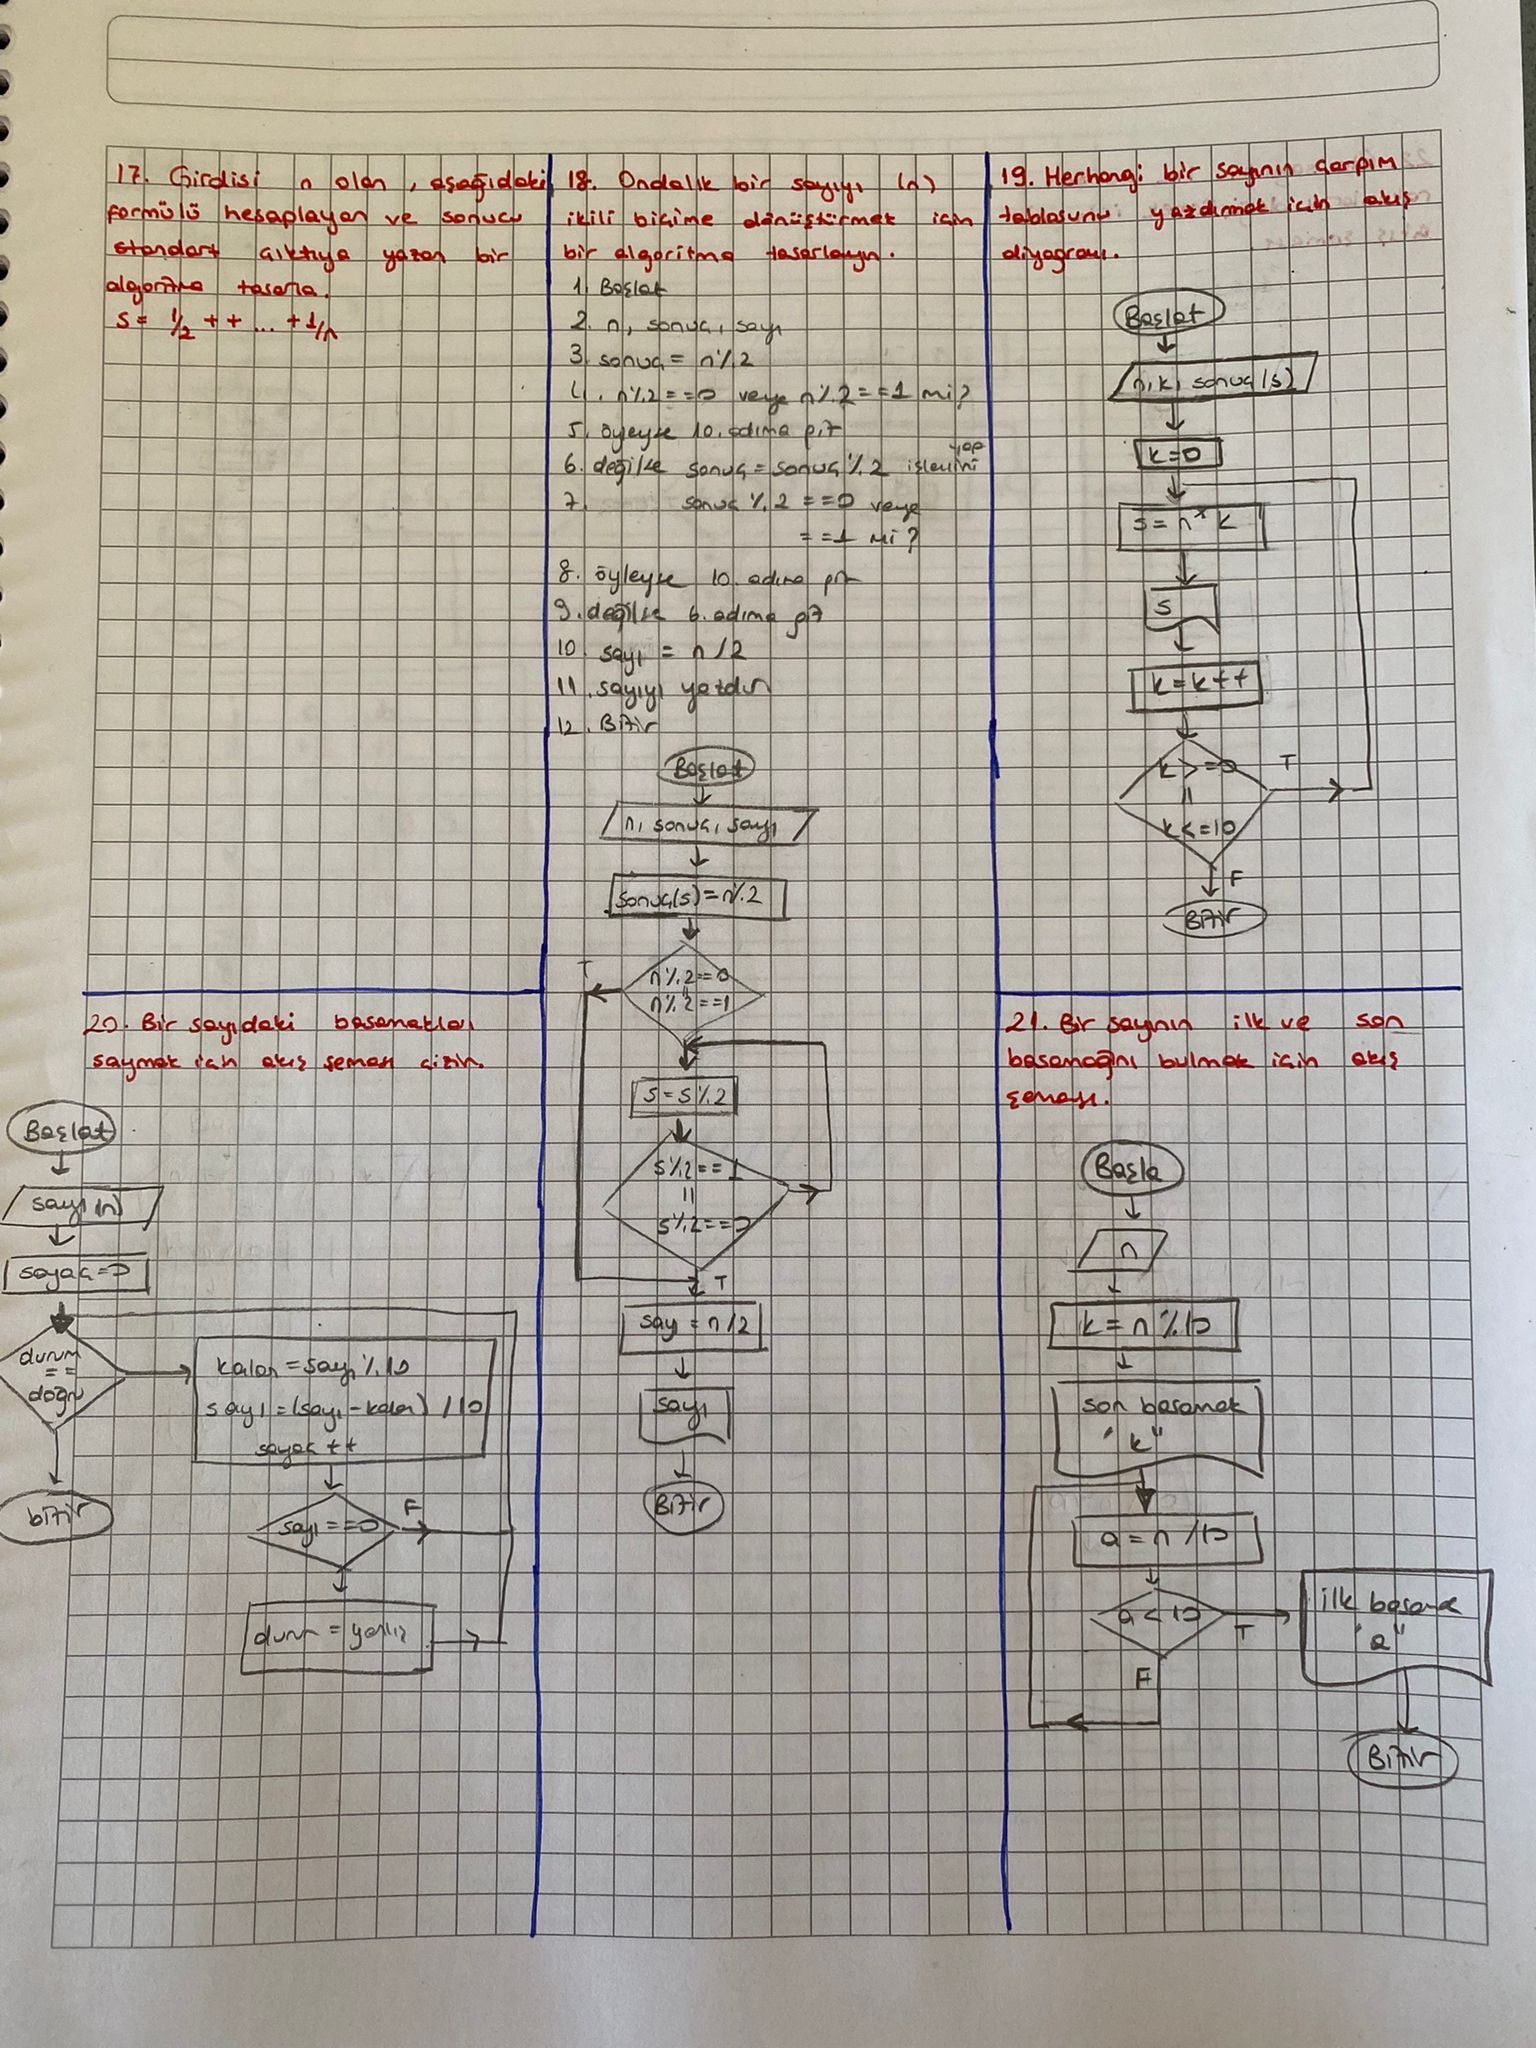 17. Girdisi n olan, aşağıdaki
formülü hesaplayan ve sonucu
standart çıktıya yazan bir
algoritma tasarla.
S = 1/2 + + ... + 1/n
18. Ondalık bir sayıyı (n)
ikili biçime dönüştürmek için
bir algoritma tasarlayın.
1. Başlat
2. n, sonuç, sayı
3. sonuç = n%2
4. n%2 == 0 veya n%2 == 1 mi?
5. öyleyse 10. adıma git
6. değilse sonuç = sonuç % 2 işlemini yap
7. sonuç % 2 == 0 veya
== 1 mi?
8. öyleyse 10. adıma git
9. değilse 6. adıma git
10. sayı = n/2
11. sayıyı yazdır
12. Bitir
Başlat
n, sonuç, sayı
sonuç(s) = n%2
T
n%2 == 0
||
n%2 == 1
s = s%2
s%2 == 1
||
s%2 == 0
T
sayı = n/2
sayı
Bitir
19. Herhangi bir sayının çarpım
tablosunu yazdırmak için akış
diyagramı.
Başlat
n, k, sonuç(s)
k=0
s = n * k
s
k = k++
k >= 0
||
k <= 10
T
F
Bitir
20. Bir sayıdaki basamakları
saymak için akış şeması çizin.
Başlat
sayı (n)
sayaç = 0
durum
==
doğru
kalan = sayı % 10
sayı = (sayı - kalan) / 10
sayaç ++
sayı == 0
F
durum = yanlış
bitir
21. Bir sayının ilk ve son
basamağını bulmak için akış
şeması.
Başla
n
k = n % 10
son basamak
"k"
a = n / 10
a < 10
T
F
ilk basamak
"a"
Bitir